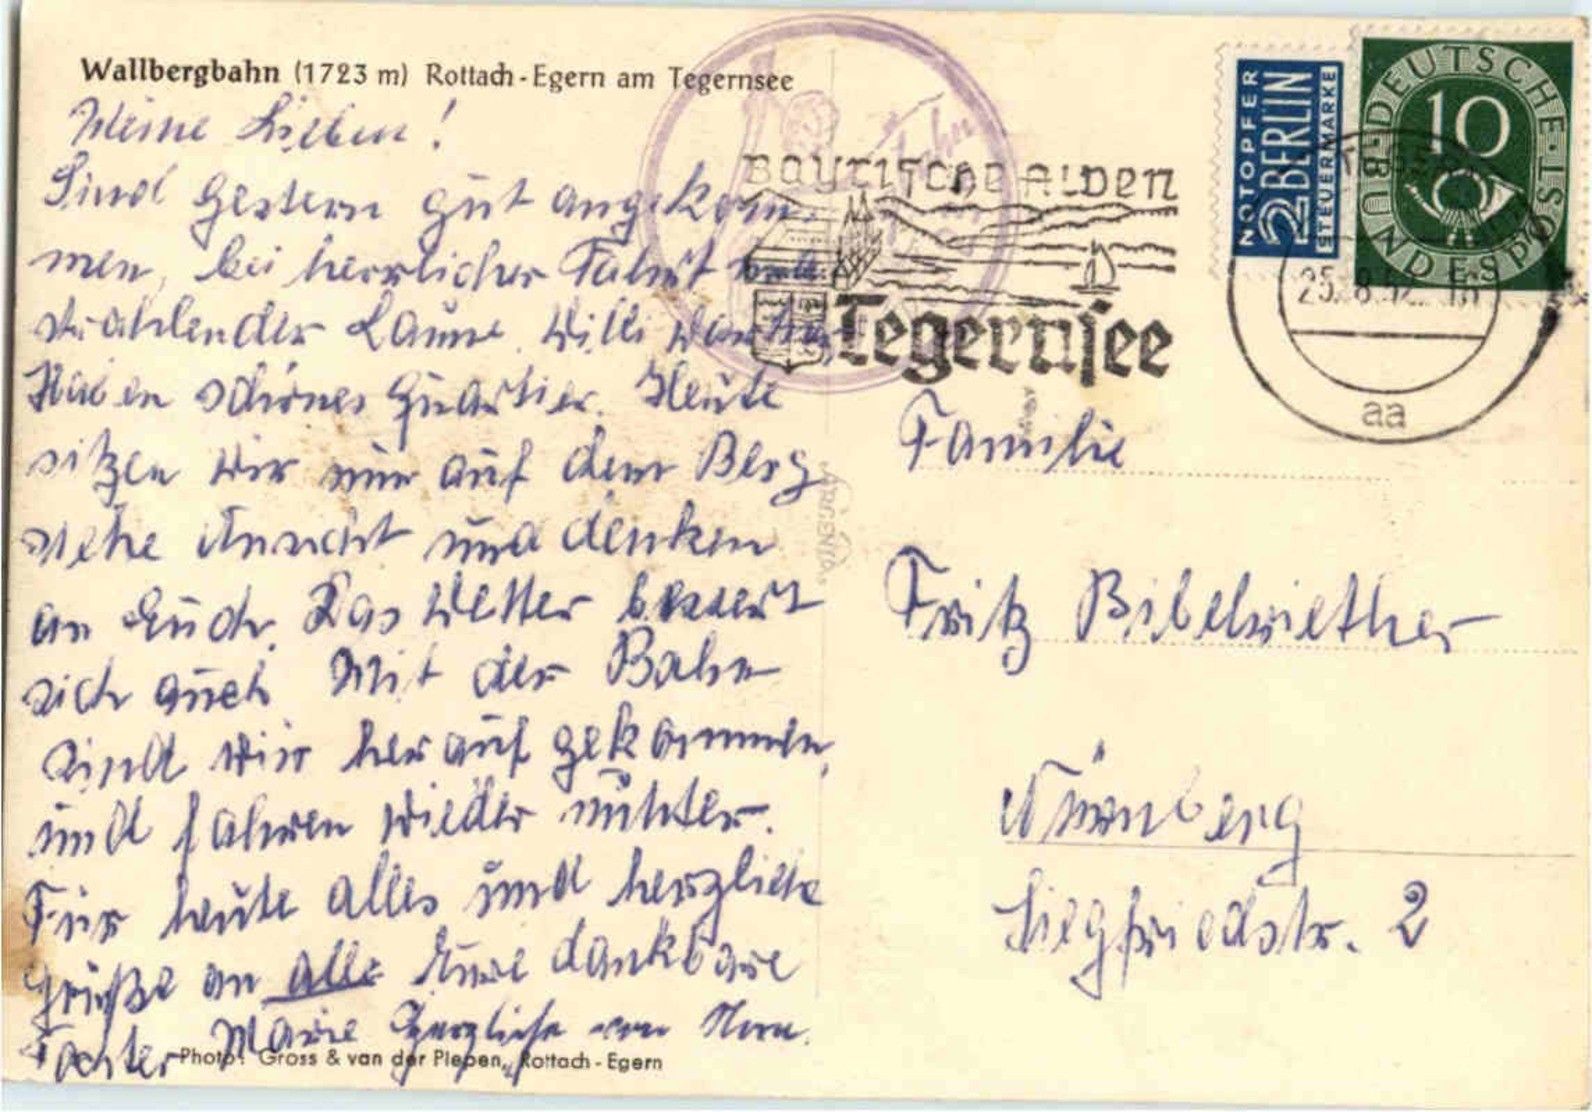 Wallbergbahn (1723 m) Rottach-Egern am Tegernsee
Meine Lieben!
Sind gestern gut angekom-
men, bei herrlicher Fahrt und
strahlender Laune. Willi
Haben schönes Quartier. Heute
sitzen wir nun auf dem Berg
siehe Ansicht und denken
an Euch. Das Wetter bessert
sich auch. Mit der Bahn
sind wir herauf gekommen,
und fahren wieder runter.
Für heute alles und herzliche
Grüße an alle Eure dankbare
Tochter Marie Herzliche von
Photo: Gross & van der Piepen, Rottach-Egern
ARGENTA
BAYRISCHE ALPEN
Tegernsee
NOTOPFER
2 BERLIN
STEUERMARKE
DEUTSCHE BUNDESPOST
10
25.8.52
aa
Familie
Fritz Bibelriether
Nürnberg
Siegfriedstr. 2